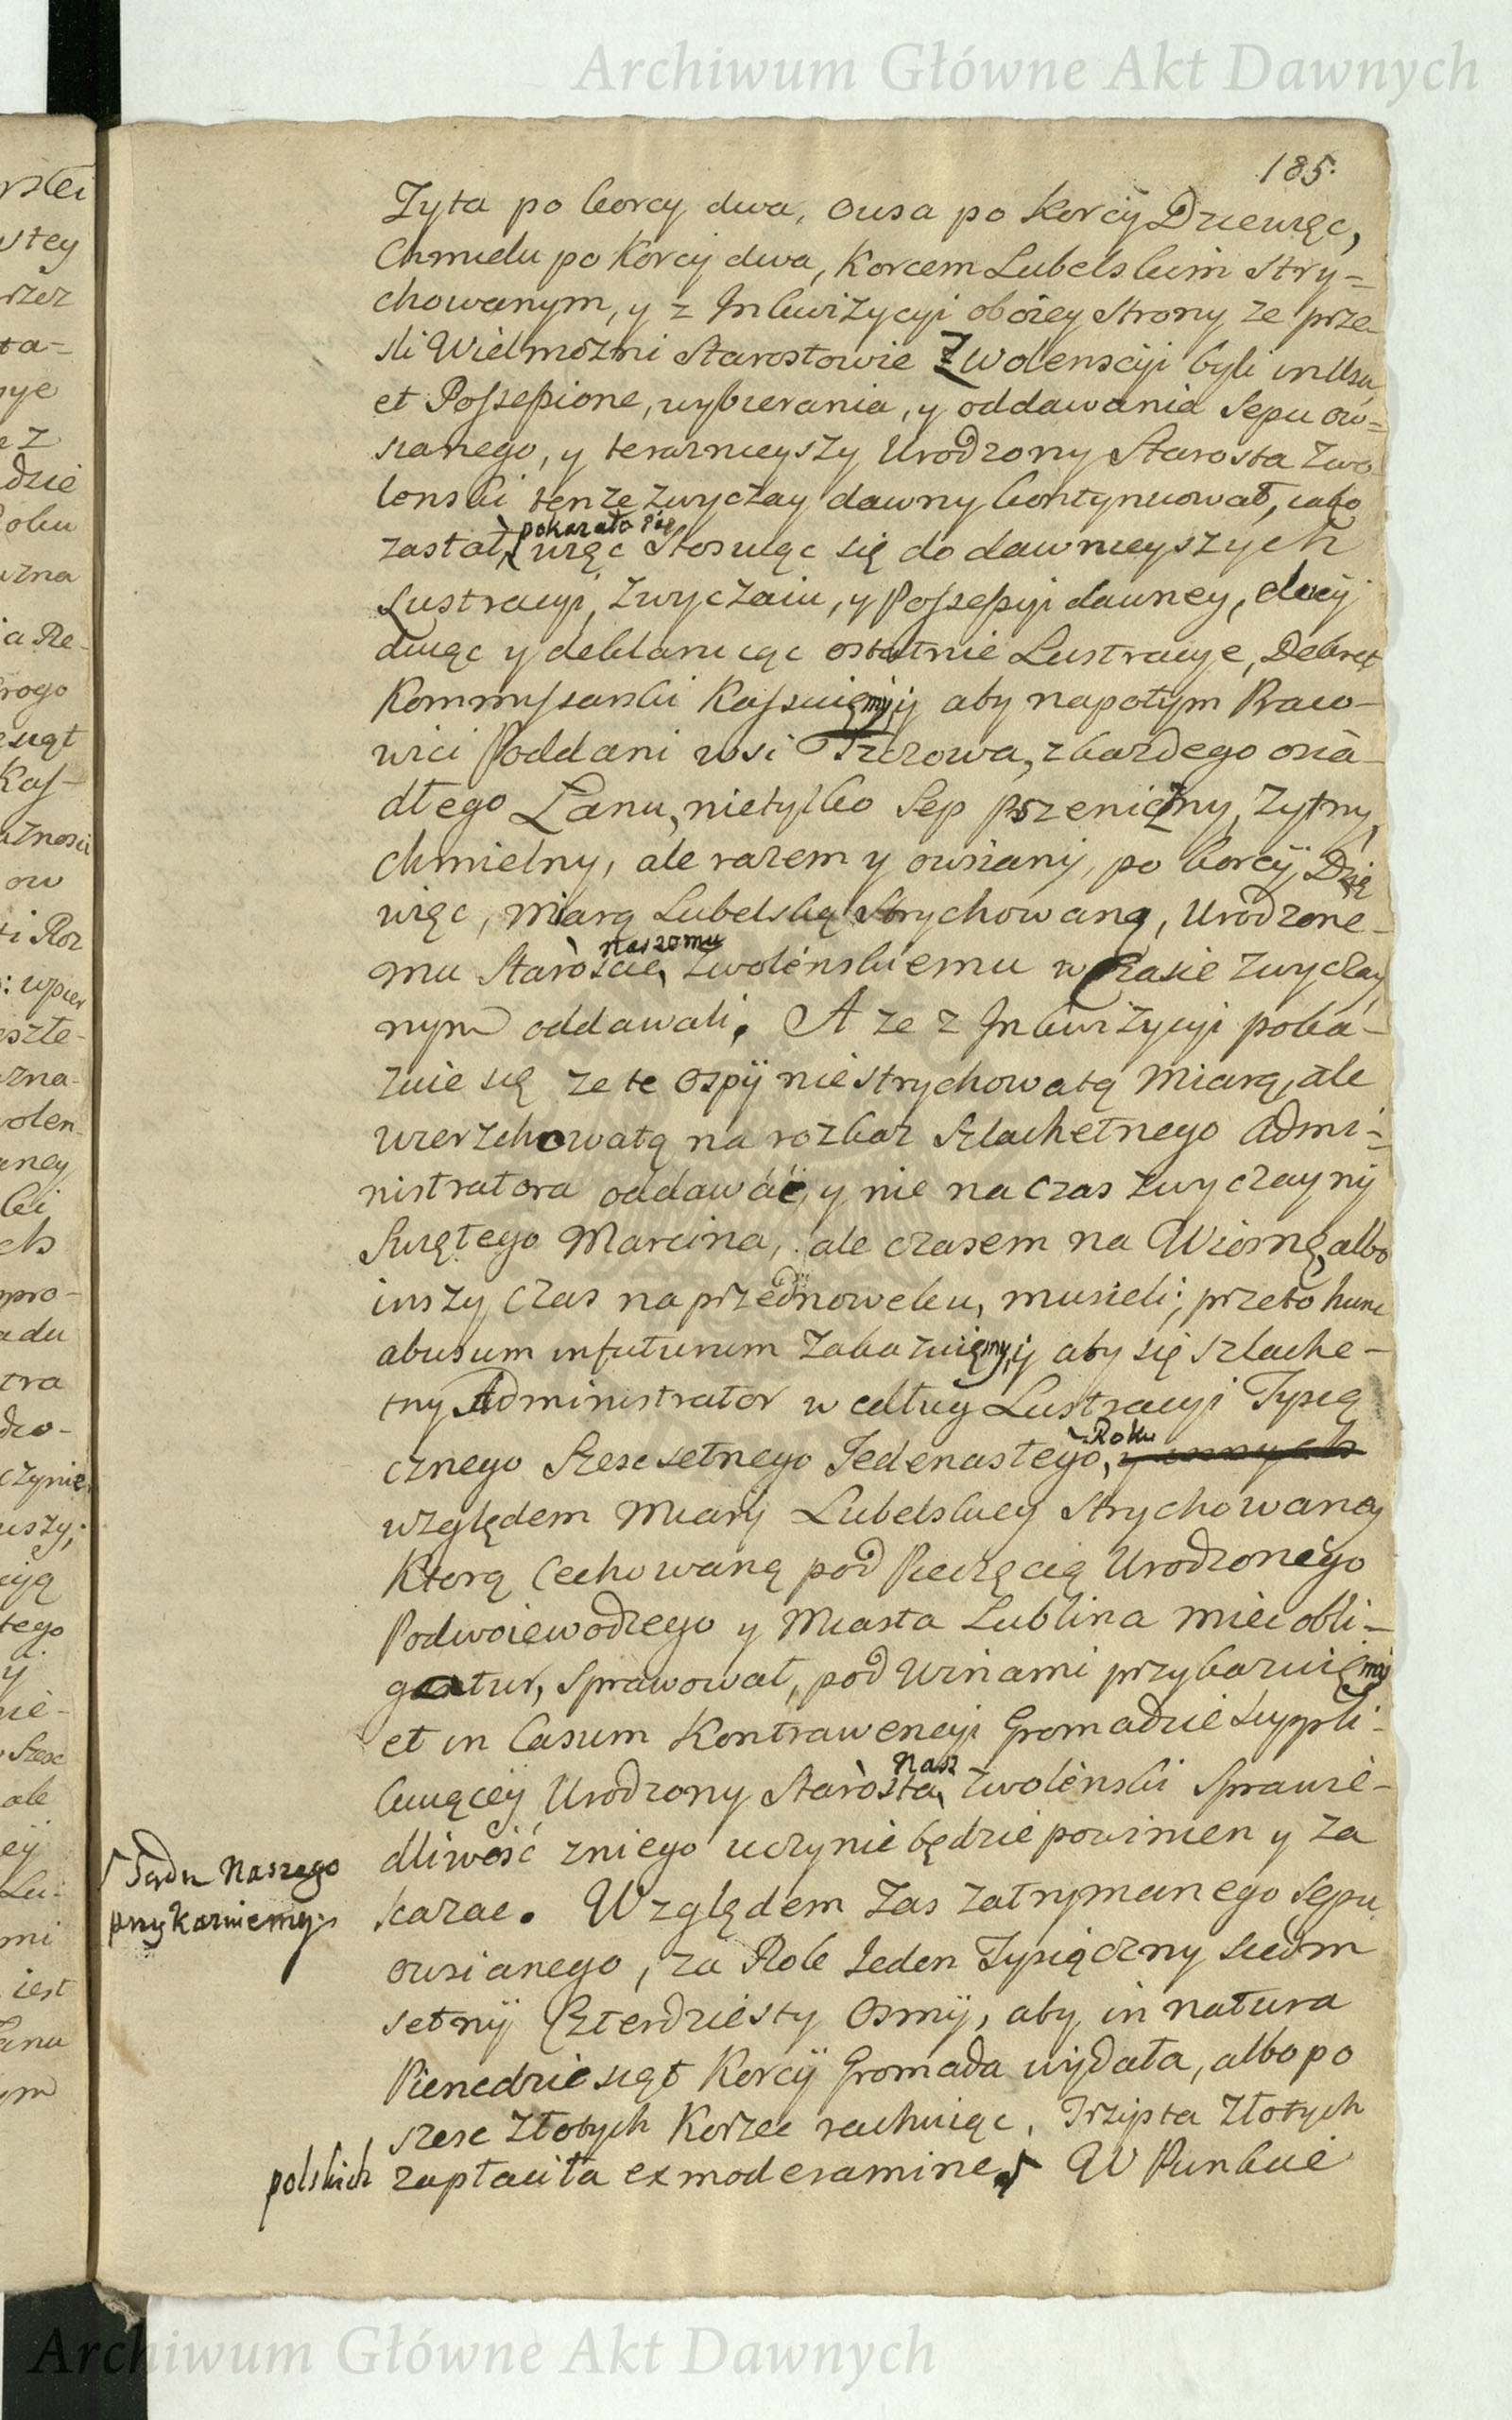 Archiwum Główne Akt Dawnych
185.
Zyta po korcy dwa, owsa po korcÿ Dziewięc,
Chmielu po Korcÿ dwa, Korcem Lubelskim Stry=
chowanym, y z Inkwizycyi oboiey strony ze prze-
sli Wielmozni Starostowie Zwolenscÿi byli in Usu
et Possessione, wybierania, y oddawania Sepu ow=
sianego, y teraznieyszy Urodzony Starosta Zwo
lenski tenze zwyczay dawny kontynuował, iako
zastał, pokazało się więc Stosuiąc się do dawnieyszych
Lustracyi, Zwyczaiu, y Possessyi dawney, decÿ
duiąc y deklaruiąc ostatnie Lustracye, Dekret
Kommissarski Kassuięmÿ aby napotym Praco-
wici Poddani wsi Tczowa, z kazdego osia-
dłego Łanu, nietylko Sep pszeniczny, Zytny,
chmielny, ale razem y owsiany, po korcÿ Dzie
więc, Miarą Lubelską Strychowaną, Urodzone-
mu Staroscie naszemu Zwolenskiemu w Czasie zwyczay
nym oddawali. A ze z Inkwizycyi poka-
zuie się ze te Ospÿ niestrychowatą Miarą, ale
wierzchowatą na rozkaz Szlachetnego Admi=
nistratora oddawać, y nie na czas zwyczaynÿ
Swiętego Marcina, ale czasem na Wiosnę, albo
inszy czas na przednoweku, musieli; przeto hunc
abusum infuturum zakazuięmy, ÿ aby się Szlache-
tny Administrator według Lustracyi Tysią
cznego Szescsetnego Jedenastego, Roku y innych
względem Miary Lubelskiey Strychowaney
Ktorą Cechowaną pod Pieczęcią Urodzonego
Podwoiewodzego y Miasta Lublina miec obli-
gatur, Sprawował, pod Winami przykazuięmy
et in Casum Kontrawencyi Gromadzie Suppli-
kuiącÿ Urodzony Starosta Nasz Zwolenski Sprawie-
dliwość zniego uczynic będzie powinien y za
skarac. Względem zas zatrymanego Sepu
owsianego, za Rok Jeden Tysiączny siedm
setnÿ Czterdziesty Osmÿ, aby in natura
Piendziesiąt Korcÿ Gromada wÿdała, albo po
szesc Złotych Korzec rachuiąc, Trzysta Złotych
polskich zapłaciła ex moderamine W Punkcie
Sądu Naszego
przykazuiemy
Archiwum Główne Akt Dawnych